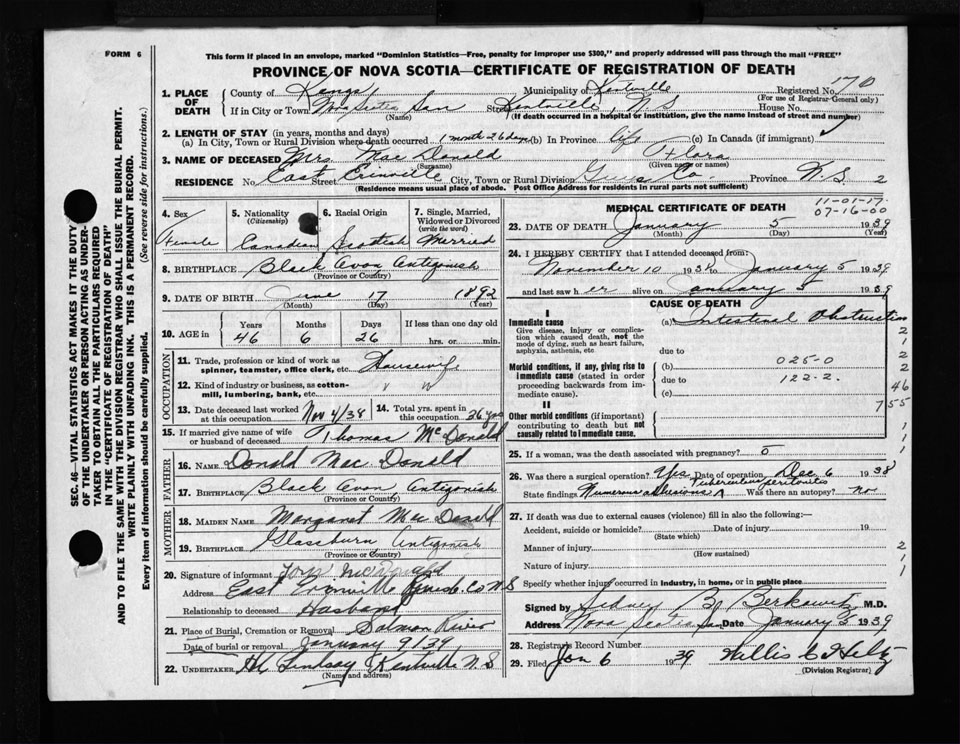 FORM 6
This form if placed in an envelope, marked "Dominion Statistics—Free, penalty for improper use $300," and properly addressed will pass through the mail "FREE"
PROVINCE OF NOVA SCOTIA—CERTIFICATE OF REGISTRATION OF DEATH
1. PLACE OF DEATH
County of Kings Municipality of Kentville Registered No. 170
(For use of Registrar-General only)
If in City or Town Nova Scotia San Street Kentville, N S House No.
(Name) (If death occurred in a hospital or institution, give the name instead of street and number)
2. LENGTH OF STAY (in years, months and days)
(a) In City, Town or Rural Division where death occurred 1 month 26 days (b) In Province life (c) In Canada (if immigrant)
3. NAME OF DECEASED Mrs Mac Donald Flora
(Surname) (Given name or names)
RESIDENCE No. East Street Erinville City, Town or Rural Division Guys Co. Province N.S. 2
(Residence means usual place of abode. Post Office Address for residents in rural parts not sufficient)
4. Sex Female
5. Nationality (Citizenship) Canadian
6. Racial Origin Scottish
7. Single, Married, Widowed or Divorced (write the word) Married
8. BIRTHPLACE Black Avon, Antigonish
(Province or Country)
9. DATE OF BIRTH June 17 1892
(Month) (Day) (Year)
10. AGE in Years Months Days If less than one day old
46 6 26 hrs. or min.
OCCUPATION
11. Trade, profession or kind of work as spinner, teamster, office clerk, etc. Housewife
12. Kind of industry or business, as cotton-mill, lumbering, bank, etc.
13. Date deceased last worked at this occupation Nov 4/38
14. Total yrs. spent in this occupation 26 yrs
15. If married give name of wife or husband of deceased Thomas McDonald
FATHER
16. NAME Donald Mac Donald
17. BIRTHPLACE Black Avon, Antigonish
(Province or Country)
MOTHER
18. MAIDEN NAME Margaret Mac Donald
19. BIRTHPLACE Glassburn Antigonish
(Province or Country)
20. Signature of informant McDonald
Address East Erinville Guysb. Co N S
Relationship to deceased Husband
21. Place of Burial, Cremation or Removal Salmon River
Date of burial or removal January 9/39
22. UNDERTAKER Lindsay Kentville N S
(Name and address)
MEDICAL CERTIFICATE OF DEATH
11-01-17
07-16-00
23. DATE OF DEATH January 5 1939
(Month) (Day) (Year)
24. I HEREBY CERTIFY that I attended deceased from:
November 10 1938 to January 5 1939
and last saw her alive on January 5 1939
CAUSE OF DEATH
I
Immediate cause
Give disease, injury or complication which caused death, not the mode of dying, such as heart failure, asphyxia, asthenia, etc
(a) Intestinal Obstruction
due to
Morbid conditions, if any, giving rise to immediate cause (stated in order proceeding backwards from immediate cause).
(b) 025-0
due to 122-2.
(c)
II
Other morbid conditions (if important) contributing to death but not causally related to immediate cause.
2
1
2
2
46
755
1
1
1
25. If a woman, was the death associated with pregnancy? 0
26. Was there a surgical operation? Yes Date of operation Dec 6 1938
Tuberculous peritonitis
State findings Numerous adhesions Was there an autopsy? no
27. If death was due to external causes (violence) fill in also the following:—
Accident, suicide or homicide? Date of injury 19
(State which)
Manner of injury 2
(How sustained) 1
Nature of injury 1
Specify whether injury occurred in industry, in home, or in public place
Signed by Sidney B. Berkowitz M.D.
Address Nova Scotia San Date January 5 1939
28. Registrar's Record Number
29. Filed Jan 6 1939 Willis C Hiltz
(Division Registrar)
SEC. 46—VITAL STATISTICS ACT MAKES IT THE DUTY
OF THE UNDERTAKER OR PERSON ACTING AS UNDERTAKER TO OBTAIN ALL THE PARTICULARS REQUIRED
IN THE "CERTIFICATE OF REGISTRATION OF DEATH"
AND TO FILE THE SAME WITH THE DIVISION REGISTRAR WHO SHALL ISSUE THE BURIAL PERMIT.
WRITE PLAINLY WITH UNFADING INK. THIS IS A PERMANENT RECORD.
Every item of information should be carefully supplied. (See reverse side for instructions.)